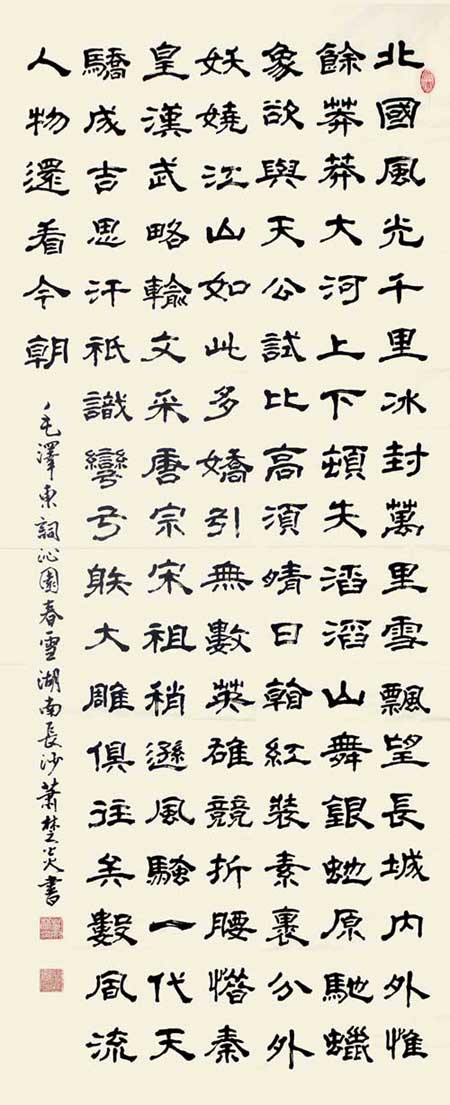 北國風光千里冰封萬里雪飄望長城内外惟
餘莽莽大河上下頓失滔滔山舞銀虵原馳蠟
象欲與天公試比高須晴日翰紅裝素裹分外
妖嬈江山如此多嬌引無數英雄競折腰惜秦
皇漢武略輸文采唐宗宋祖稍遜風騷一代天
驕成吉思汗祇識彎弓䠶大雕俱往矣數風流
人物還看今朝
毛澤東詞沁園春雪湖南長沙蕭椘炎書